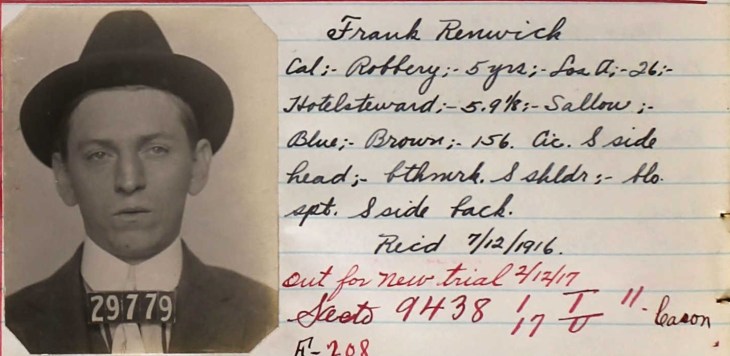 Frank Renwick
Cal;- Robbery;- 5 yrs;- Los A;- 26;-
Hotelsteward;- 5.9⅛;- Sallow;-
Blue;- Brown;- 156. Cic. S side
head;- bthmrk. S shldr;- blo.
spt. S side back.
Rec'd 7/12/1916.
Out for new trial 2/12/17
9438 1/17 I/U 11-
F-208
29779